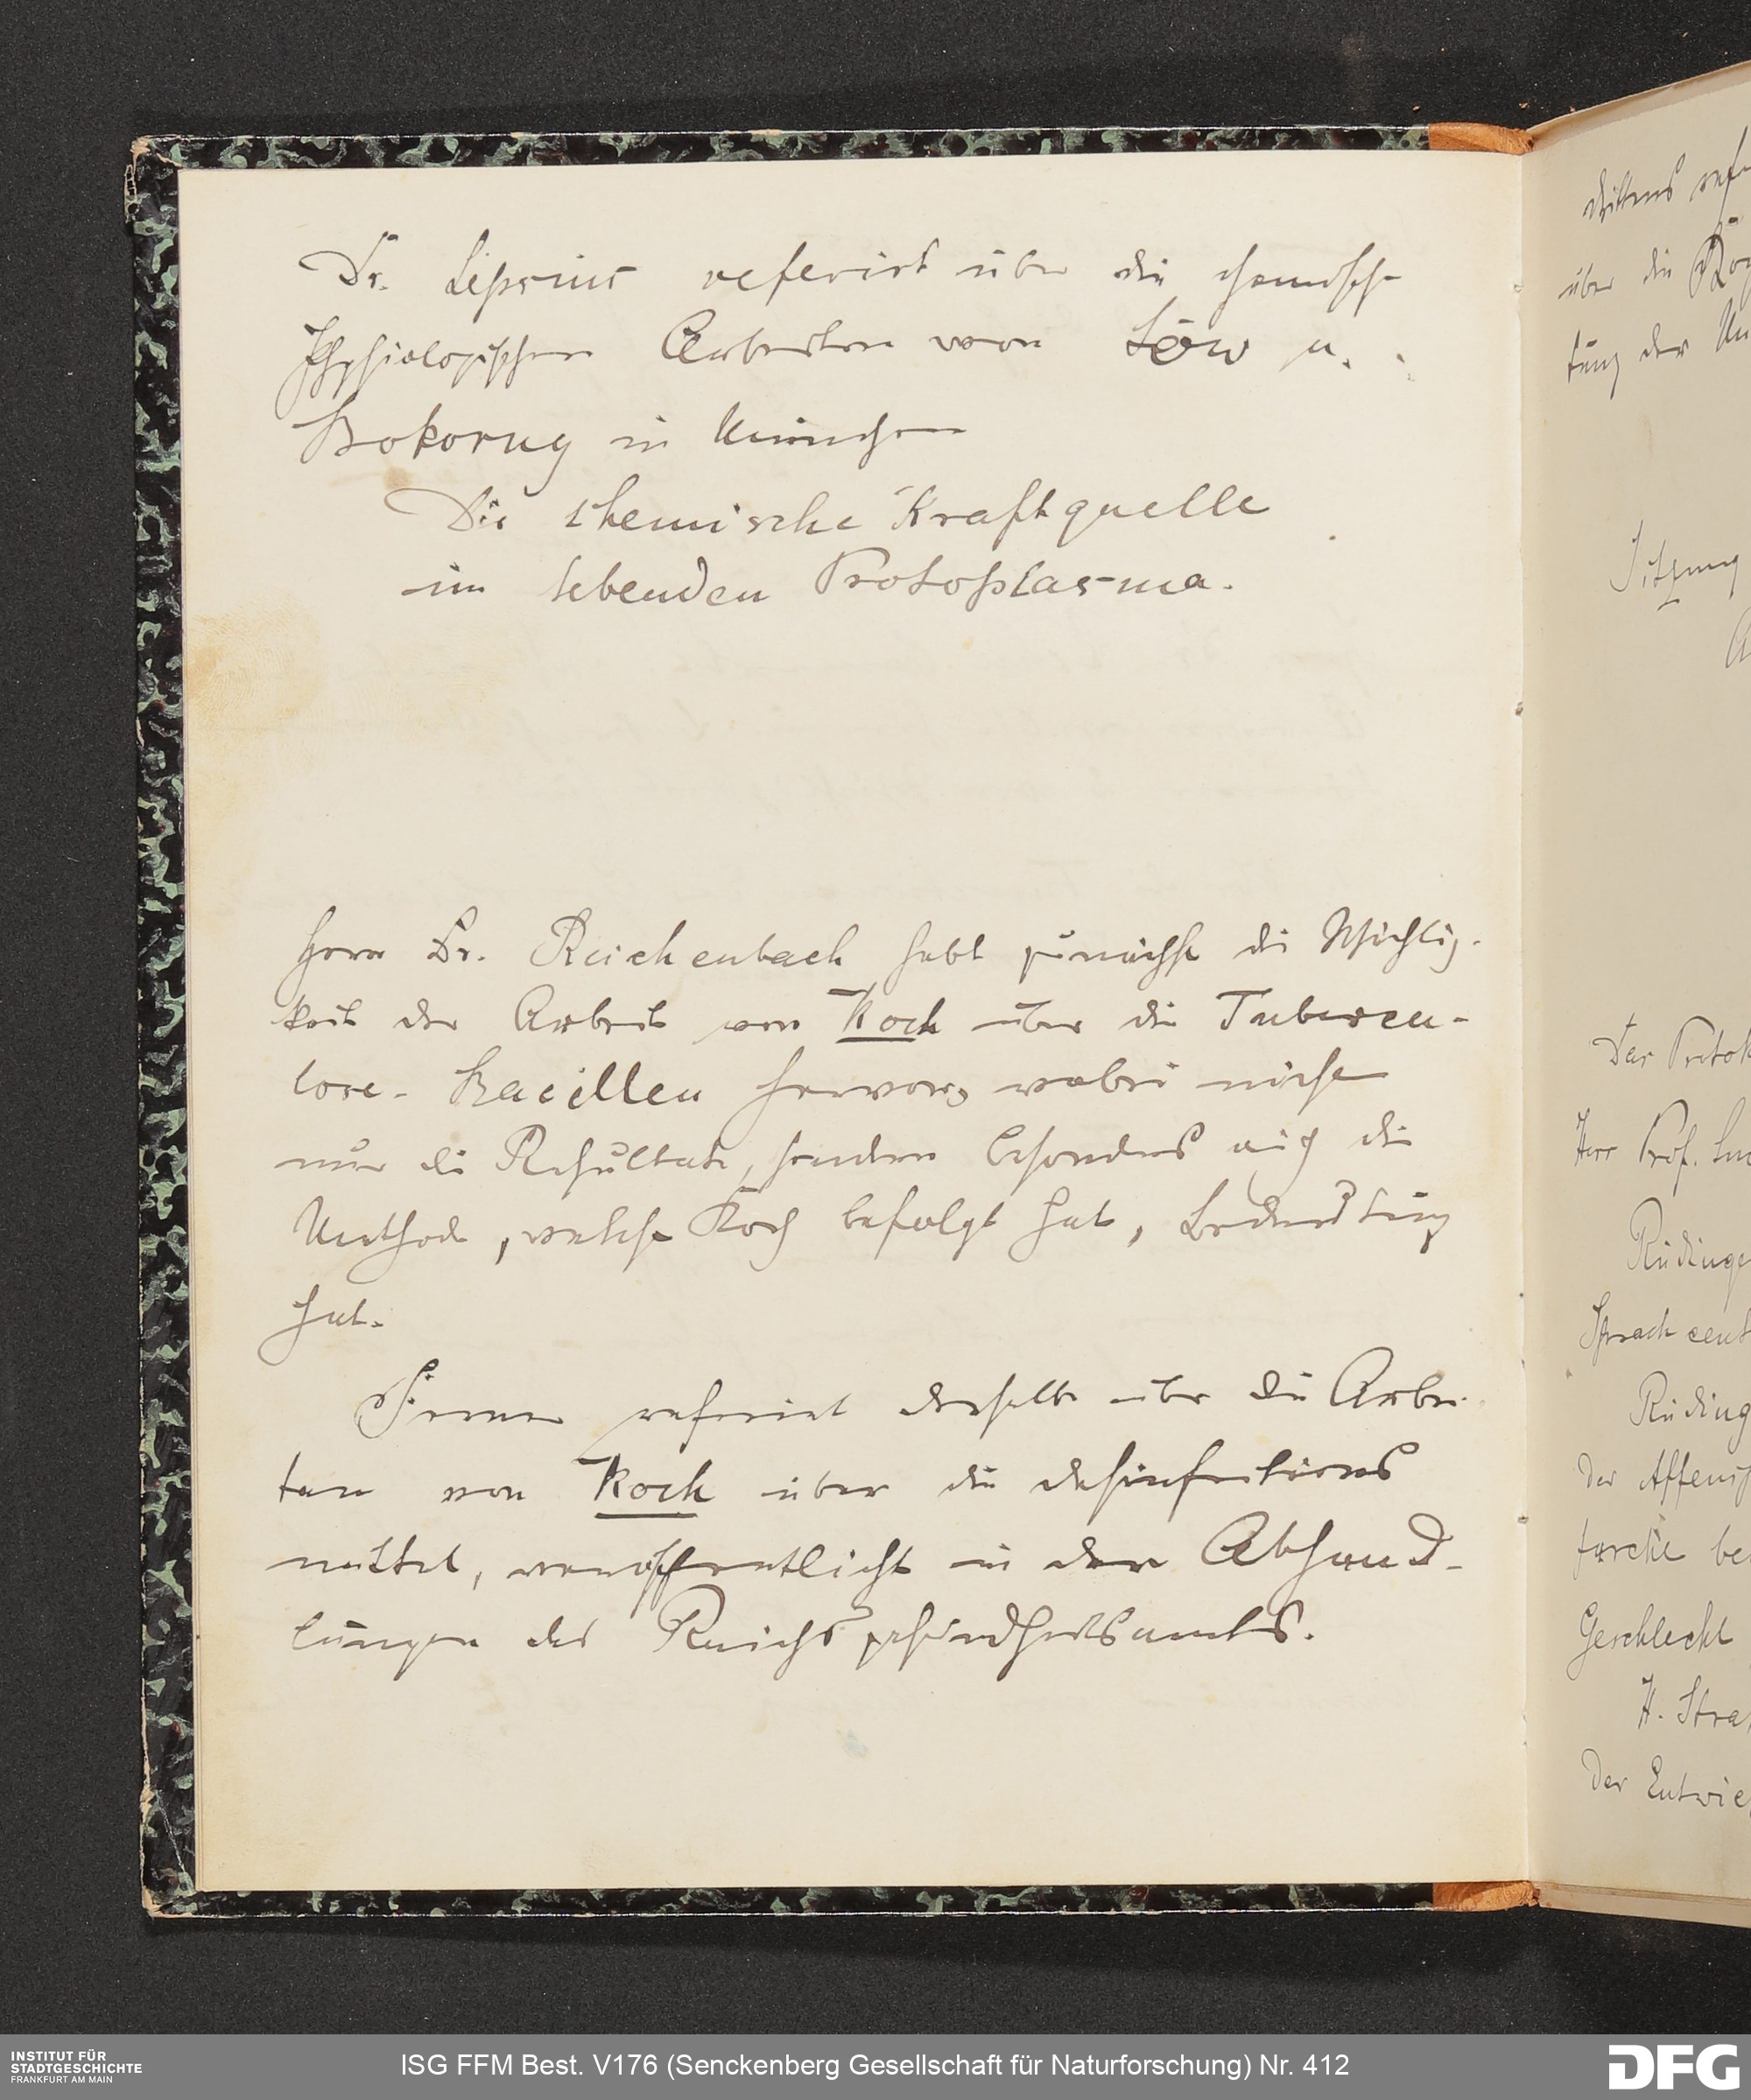 Dr. Lepsius referirt über die chemisch
physiologischen Arbeiten von Löw u.
Bokorny in München
Die chemische Kraftquelle
im lebenden Protoplasma.
Herr Dr. Reichenbach hebt zunächst die Wichtig-
keit der Arbeit von Koch über die Tubercu-
lose-Bacillen hervor, wobei nicht
nur die Resultate, sondern besonders auch die
Methode, welche Koch befolgt hat, Bedeutung
hat.
Ferner referirt derselbe über die Arbei-
ten von Koch über die Desinfections
mittel, veröffentlicht in den Abhand-
lungen des Reichsgesundheitsamtes.
über die
tung der
Sitzung
Das
Herr Prof.
Rüdinger
Der
furche
Geschlecht
H.
der
INSTITUT FÜR
STADTGESCHICHTE
FRANKFURT AM MAIN
ISG FFM Best. V176 (Senckenberg Gesellschaft für Naturforschung) Nr. 412
DFG